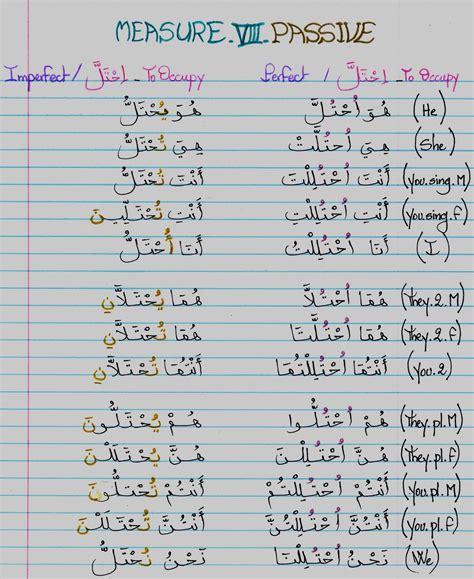 MEASURE.VIII.PASSIVE
Imperfect / اِحْتَلَّ _ To Occupy Perfect / اِحْتَلَّ _ To Occupy
(He) هُوَ اُحْتُلَّ هُوَ يُحْتَلُّ
(She) هِيَ اُحتُلَّتْ هِيَ تُحْتَلُّ
(you.sing.M) أَنْتَ اُحْتُلِلْتَ أَنْتَ تُحْتَلُّ
(you.sing.f) أَنْتِ اُحْتُلِلْتِ أَنْتِ تُحْتَلِّينَ
(I) أَنَا اُحْتُلِلْتُ أَنَا أُحْتَلُّ
(they.2.M) هُمَا اُحْتُلاَّ هُمَا يُحْتَلاَّنِ
(they.2.f) هُمَا اُحْتُلَّتَا هُمَا تُحْتَلاَّنِ
(you.2) أَنْتُمَا اُحْتُلِلْتُمَا أَنْتُمَا تُحْتَلاَّنِ
(they.pl.M) هُمْ اُحْتُلُّوا هُمْ يُحْتَلُّونَ
(they.pl.f) هُنَّ اُحْتُلِلْنَ هُنَّ يُحْتَلَلْنَ
(you.pl.M) أَنْتُمْ اُحْتُلِلْتُمْ أَنْتُمْ تُحْتَلُّونَ
(you.pl.f) أَنْتُنَّ اُحْتُلِلْتُنَّ أَنْتُنَّ تُحْتَلَلْنَ
(We) نَحْنُ اُحْتُلِلْنَا نَحْنُ نُحْتَلُّ